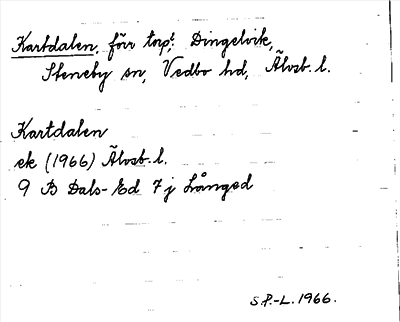 Kartdalen, förr torp, Dingelvik,
Steneby sn, Vedbo hd, Älvsb. l.
Kartdalen
ek (1966) Älvsb. l.
9 B Dals-Ed 7 j Långed
S.P.-L. 1966.